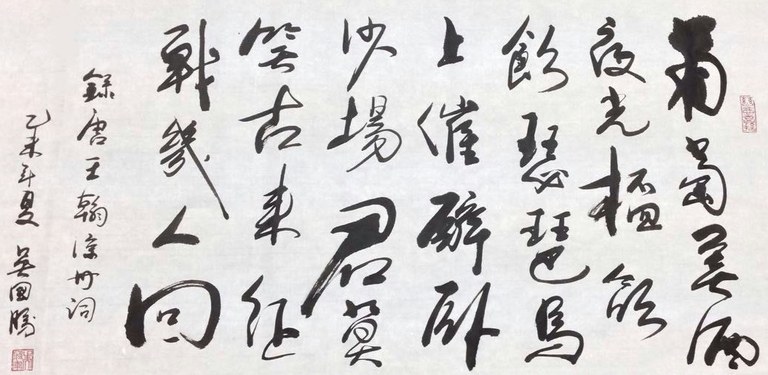 葡萄美酒
夜光杯欲
飲琵琶馬
上催醉卧
沙場君莫
笑古来征
戰幾人回
錄唐王翰涼州詞
乙未年夏 吳國勝